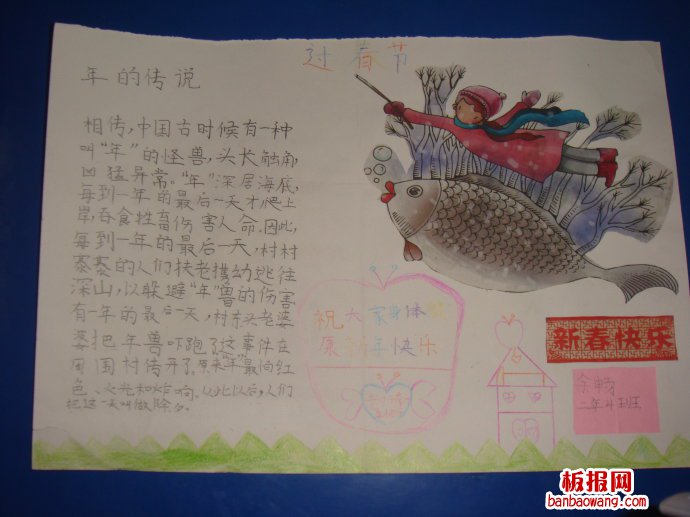 过春节
年的传说
相传,中国古时候有一种
叫“年”的怪兽,头长触角,
凶猛异常。“年”深居海底,
每到一年的最后一天才爬上
岸,吞食牲畜伤害人命。因此,
每到一年的最后一天,村村
寨寨的人们扶老携幼逃往
深山,以躲避“年”兽的伤害
有一年的最后一天,村东头老婆
婆把年兽吓跑了这事件在
周围村传开了。原来“年”最怕红
色、火光和炸响。从此以后,人们
把这一天叫做除夕。
祝大家身体健
康新年快乐
新春快乐
余畅
二年4班
板报网
banbaowang.com